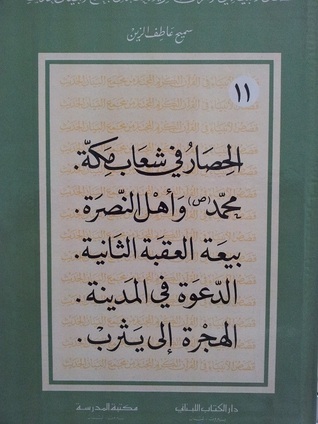 سميح عاطف الزين
١١
الحصار في شعاب مكة.
محمد (ص) وأهل النصرة.
بيعة العقبة الثانية.
الدعوة في المدينة.
الهجرة إلى يثرب.
دار الكتاب اللبناني
مكتبة المدرسة